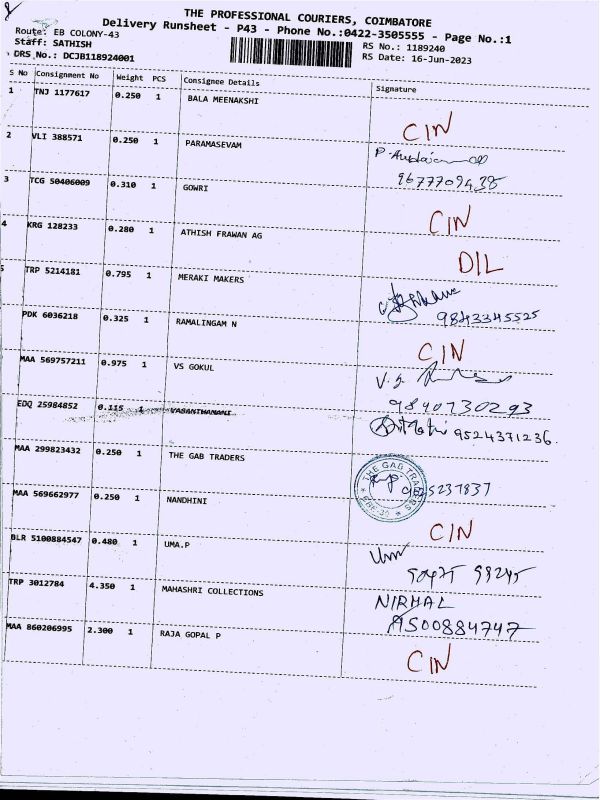 THE PROFESSIONAL COURIERS, COIMBATORE
Delivery Runsheet - P43 - Phone No.:0422-3505555 - Page No.:1
Route: EB COLONY-43
Staff: SATHISH RS No.: 1189240
DRS No.: DCJB118924001 RS Date: 16-Jun-2023
S No Consignment No Weight PCS Consignee Details Signature
1 TNJ 1177617 0.250 1 BALA MEENAKSHI CIN
2 VLI 388571 0.250 1 PARAMASEVAM
9677709438
3 TCG 50406009 0.310 1 GOWRI CIN
4 KRG 128233 0.280 1 ATHISH FRAWAN AG DIL
5 TRP 5214181 0.795 1 MERAKI MAKERS
9843345525
PDK 6036218 0.325 1 RAMALINGAM N CIN
MAA 569757211 0.975 1 VS GOKUL V.S.
9840730293
EDQ 25984852 0.115 1 VASANTHAMANI 9524371236.
MAA 299823432 0.250 1 THE GAB TRADERS THE GAB
MAA 569662977 0.250 1 NANDHINI CIN
BLR 5100884547 0.480 1 UMA.P Um
TRP 3012784 4.350 1 MAHASHRI COLLECTIONS NIRMAL
MAA 860206995 2.300 1 RAJA GOPAL P CIN